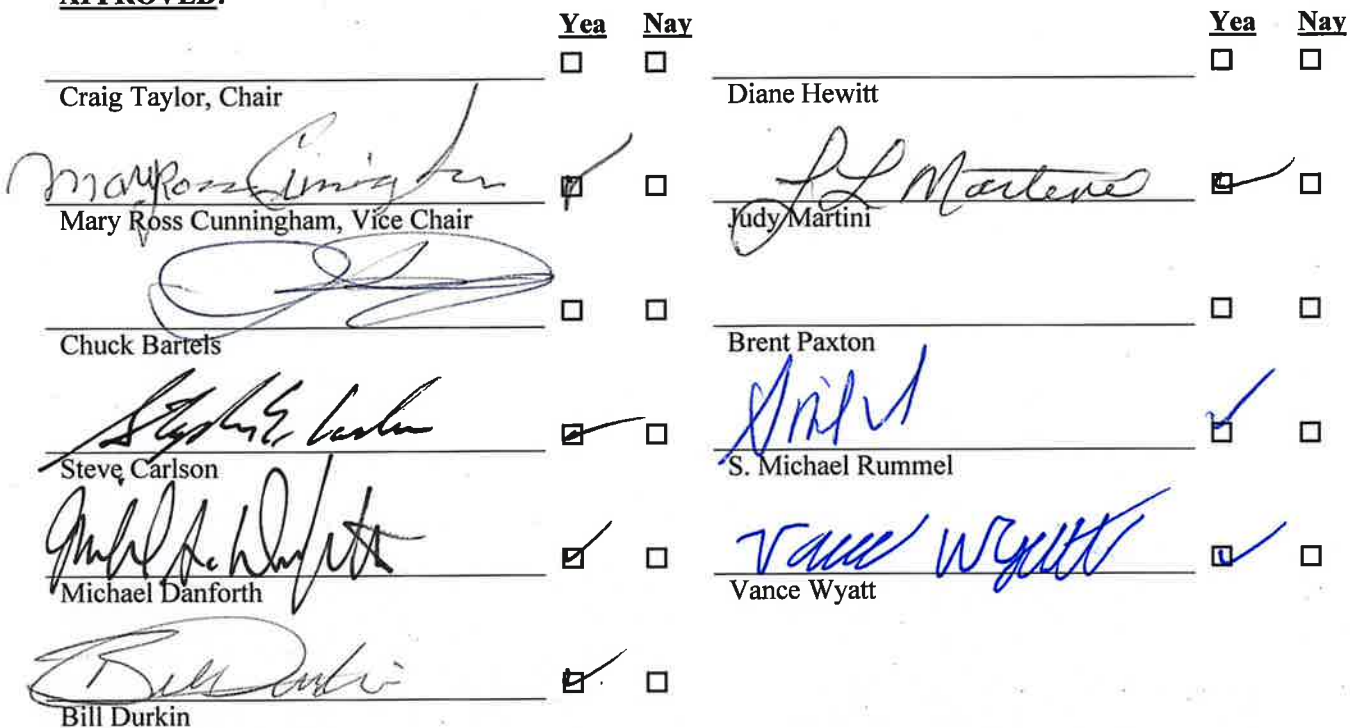 APPROVED:
Yea Nay
Craig Taylor, Chair
Mary Ross Cunningham
Mary Ross Cunningham, Vice Chair
Chuck Bartels
Stephen E. Carlson
Steve Carlson
Michael Danforth
Bill Durkin
Bill Durkin
Yea Nay
Diane Hewitt
J L Martini
Judy Martini
Brent Paxton
S. Michael Rummel
Vance Wyatt
Vance Wyatt